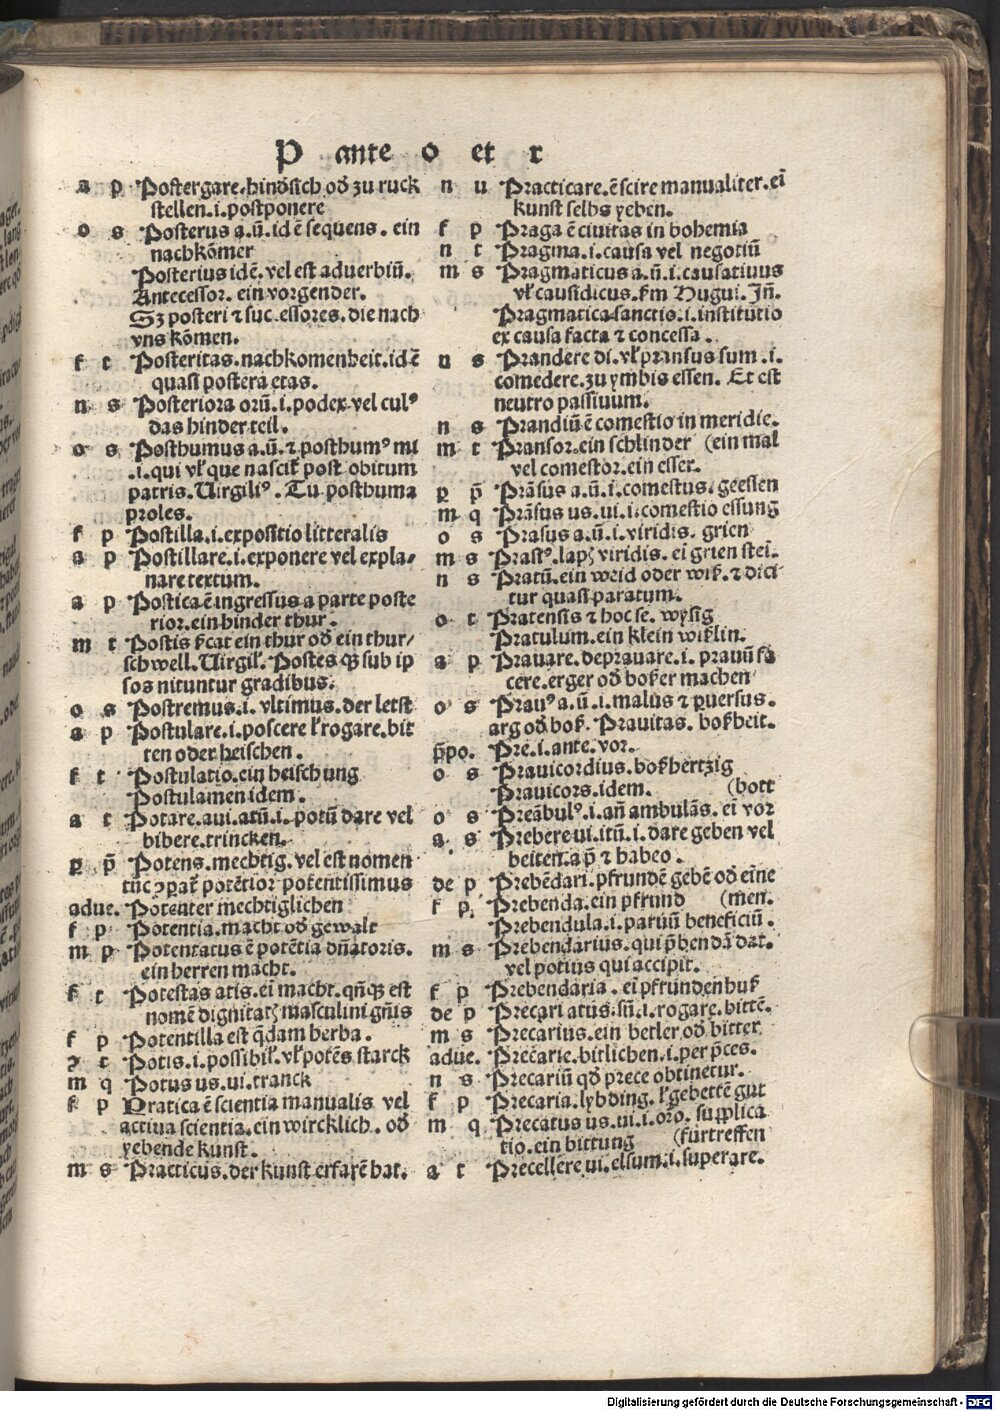 P ante o et r
a p Postergare.hindsich od zu ruck
stellen.i.postponere
o s Posterus a.ū.id ē sequens. ein
nachkōmer
Posterius idē. vel est aduerbiū.
Antecessor. ein vorgender.
Sz posteri ⁊ suc.essores. die nach
vns kōmen.
f t Posteritas.nachkomenheit.id ē
quasi postera etas.
n s Posteriora orū.i.podex vel culꝰ
das hinder teil.
o s Posthumus a.ū.⁊ posthumꝰ mi
.i.qui vł que nascit post obitum
patris. Uirgiliꝰ. Tu posthuma
proles.
f p Postilla.i.expositio litteralis
a p Postillare.i.exponere vel expla-
nare textum.
a p Postica ē ingressus a parte poste
rior.ein hinder thur.
m t Postis ein thur od ein thur/
schwell. Uirgil. Postes qȝ sub ip
sos nituntur gradibus.
o s Postremus.i. vltimus. der letst
a p Postulare.i.poscere ł rogare.bit
ten oder heischen.
f t Postulatio.ein heischung
Postulamen idem.
a t Potare.aui.atū.i.potū dare vel
bibere.trincken.
ꝑ p̄ Potens.mechtig. vel est nomen
potētior potentissimus
adue. Potenter mechtiglichen
f p Potentia.macht od gewalt
m p Potentatus ē potētia dn̄atoris.
ein herren macht.
f t Potestas atis.ei macht.qn̄qȝ est
nomē dignitatꝭ masculini gn̄is
f p Potentilla est q̄dam herba.
ꝯ t Potis.i.possibil. vł potēs starck
m q Potus us.ui.tranck
f p Pratica ē scientia manualis vel
actiua scientia.ein wircklich. od
yebende kunst.
m s Practicus.der kunst erfarē hat.
n u Practicare.ē scire manualiter.ei
kunst selbs yeben.
f p Praga ē ciuitas in bohemia
n t Pragma.i.causa vel negotiū
m s Pragmaticus a.ū.i.causatiuus
vł causidicus. Hugui. Jn̄.
Pragmatica sanctis.i.institutio
ex causa facta ⁊ concessa.
n s Prandere di.vł pransus sum.i.
comedere.zu ymbis essen. Et est
neutro passiuum.
n s Prandiū ē comestio in meridie.
m t Pransor.ein schlinder (ein mal
vel comestor.ein esser.
ꝑ p̄ Prāsus a.ū.i.comestus.geessen
m q Prāsus us.ui.i.comestio essung
o s Prasus a.ū.i.viridis. grien
m s Prasꝰ.lapꝭ viridis. ei grien stei.
n s Pratū.ein weid oder wiß.⁊ dici
tur quasi paratum.
o t Pratensis ⁊ hoc se. wysig
Pratulum.ein klein wißlin.
a p Prauare.deprauare.i. prauū fa
cere.erger od boßer machen
o s Prauꝰ a.ū.i.malus ⁊ ꝑuersus.
arg od boß. Prauitas. boßheit.
p̄po. Pre.i.ante.vor.
o s Prauicordius.boßhertzig
Prauicors.idem. (bott
o s Preābulꝰ.i.an̄ ambulās. ei vor
a s Prebere ui.itū.i.dare geben vel
beiten.a p̄ ⁊ habeo.
de p Prebēdari.pfrundē gebē od eine
f p Prebenda.ein pfrund (men.
Prebendula.i.paruū beneficiū.
m s Prebendarius.qui p̄bendā dat.
vel potius qui accipit.
f p Prebendaria. ei pfrundenhuß
de p Precari atus.sū.i.rogare.bittē.
m s Precarius.ein betler od bitter
adue. Precārie.bitlichen.i.per p̄ces.
n s Precariū qd prece obtinetur.
f p Precaria.lybding. ł gebettē gut
m q Precatus us.ui.i.oro. supplica
tio.ein bittung (furtreffen
a t Precellere ui.elsum.i.superare.
Digitalisierung gefördert durch die Deutsche Forschungsgemeinschaft - DFG